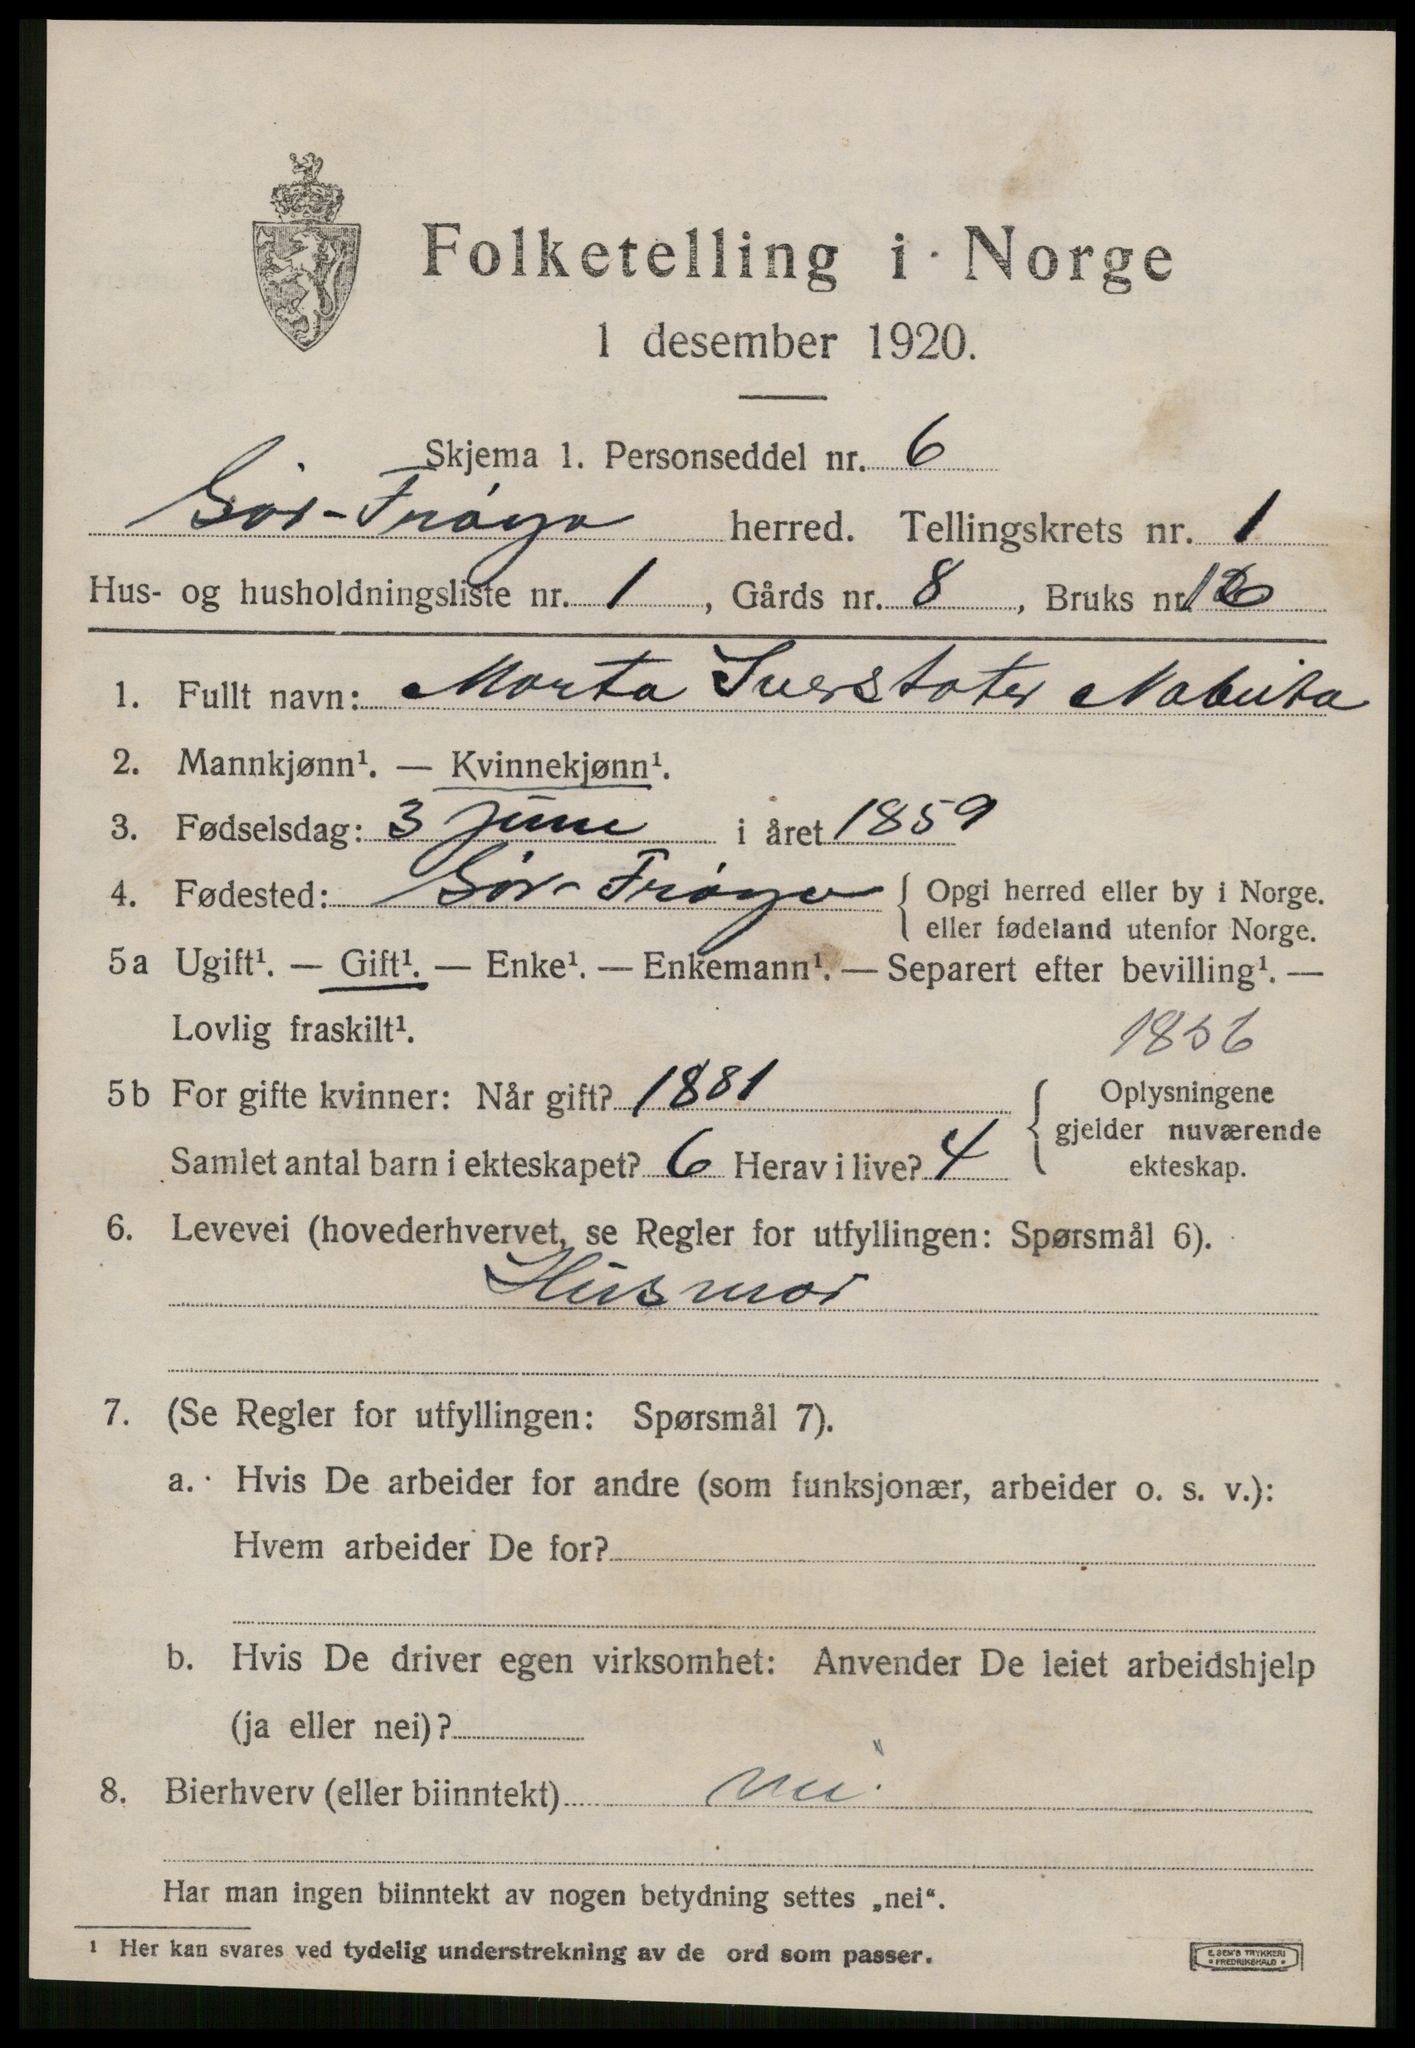 Folketelling i Norge
1 desember 1920.
Skjema 1. Personseddel nr. 6
Sør-Frøya herred. Tellingskrets nr. 1
Hus- og husholdningsliste nr. 1, Gårds nr. 8, Bruks nr.
1. Fullt navn: Marta Iverstater Nabeita
2. Mannkjønn¹. — Kvinnekjønn¹.
3. Fødselsdag: 3 juni i året 1859
4. Fødested: Sør-Frøya { Opgi herred eller by i Norge.
eller fødeland utenfor Norge.
5a Ugift¹. — Gift¹. — Enke¹. — Enkemann¹. — Separert efter bevilling¹. —
Lovlig fraskilt¹. 1856
5b For gifte kvinner: Når gift? 1881
Samlet antal barn i ekteskapet? 6 Herav i live? 4
{ Oplysningene
gjelder nuværende
ekteskap.
6. Levevei (hovederhvervet, se Regler for utfyllingen: Spørsmål 6).
Husmor
7. (Se Regler for utfyllingen: Spørsmål 7).
a. Hvis De arbeider for andre (som funksjonær, arbeider o. s. v.):
Hvem arbeider De for?
b. Hvis De driver egen virksomhet: Anvender De leiet arbeidshjelp
(ja eller nei)?
8. Bierhverv (eller biinntekt) nei
Har man ingen biinntekt av nogen betydning settes „nei“.
¹ Her kan svares ved tydelig understrekning av de ord som passer.
E. SEM'S TRYKKERI
FREDRIKSHALD